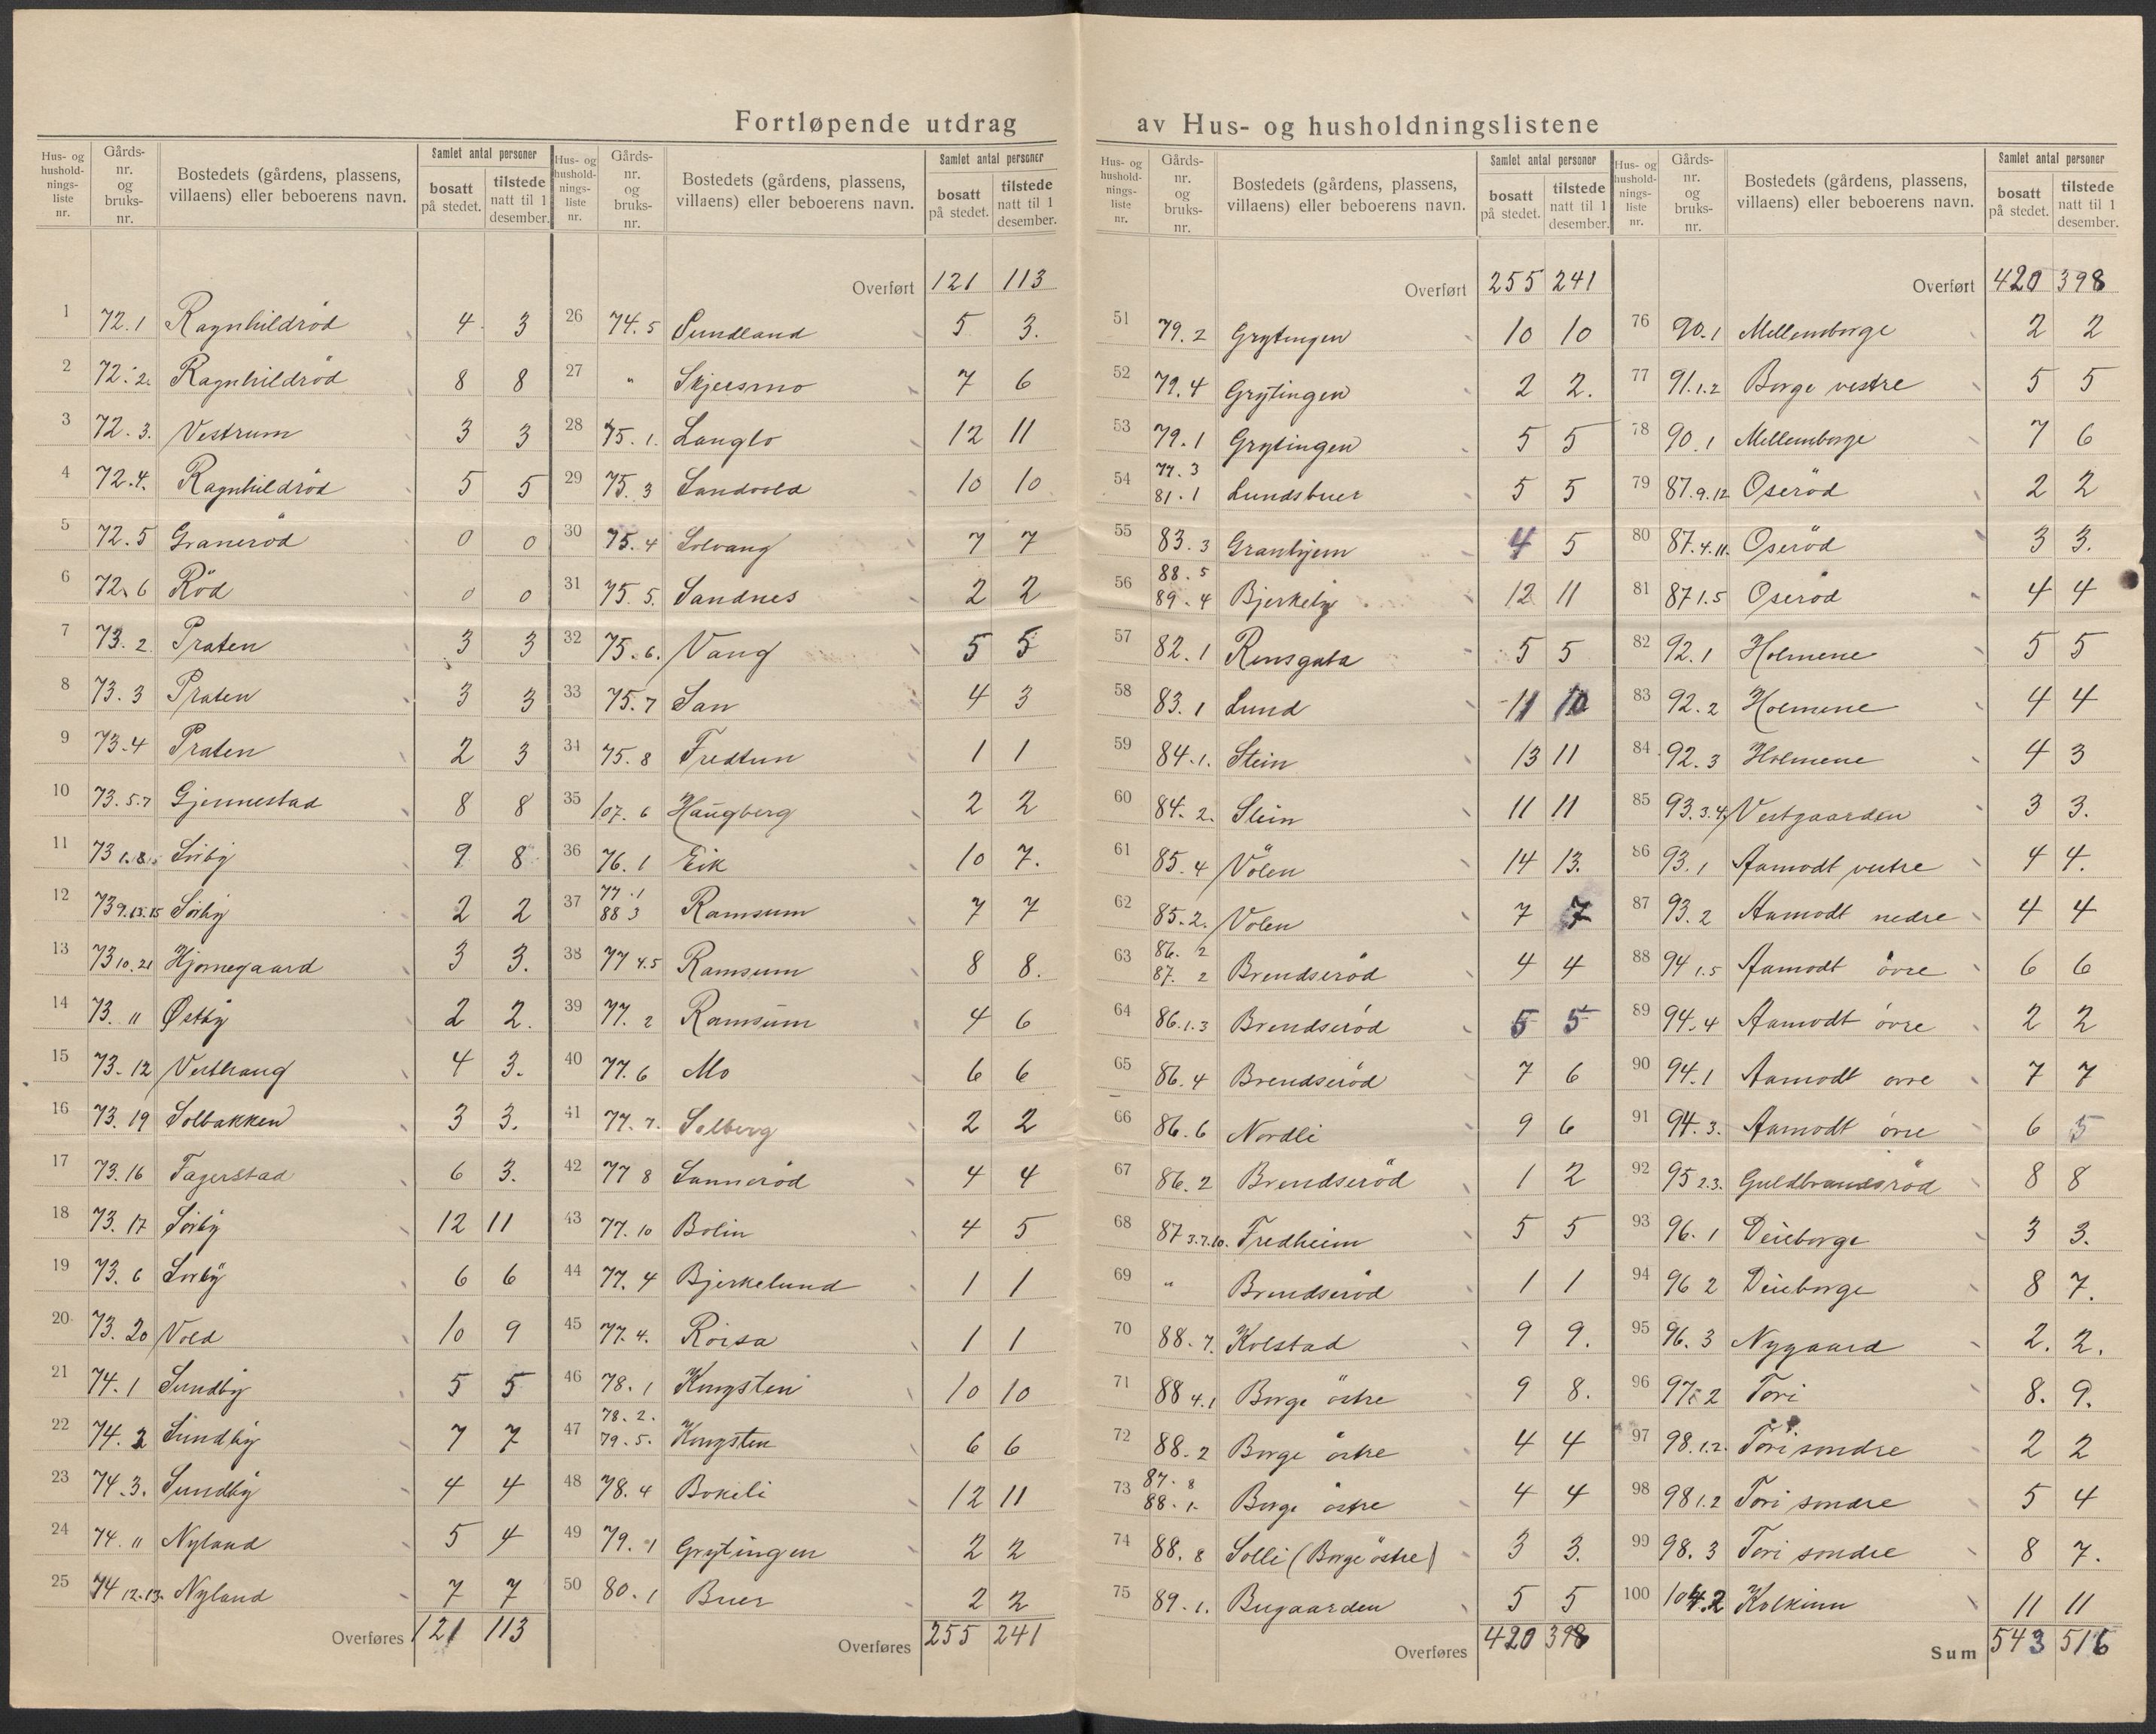 Fortløpende utdrag av Hus- og husholdningslistene
Hus- og husholdnings- liste nr. Gårds- nr. og bruks- nr. Bostedets (gårdens, plassens, villaens) eller beboerens navn. Samlet antal personer bosatt på stedet. tilstede natt til 1 desember.
1 72.1 Ragnhildröd 4 3
2 72.2. Ragnhildröd 8 8
3 72.3. Vestrum 3 3
4 72.4. Ragnhildröd 5 5
5 72.5 Graneröd 0 0
6 72.6 Röd 0 0
7 73.2 Praten 3 3
8 73.3 Praten 3 3
9 73.4 Praten 2 3
10 73.5.7 Gjennestad 8 8
11 73 1.8. Sörby 9 8
12 73 9.13.15 Sörby 2 2
13 73 10.21 Hjornegaard 3 3.
14 73. 11 Østby 2 2.
15 73.12 Vesthaug 4 3.
16 73.19 Solbakken 3 3.
17 73.16 Fagerstad 6 3.
18 73.17 Sörby 12 11
19 73.6 Sörby 6 6
20 73.20 Vold 10 9
21 74.1 Sundby 5 5
22 74.2 Sundby 7 7
23 74.3. Sundby 4 4
24 74.11 Nyland 5 4
25 74 12.13. Nyland 7 7
Overføres 121 113
Hus- og husholdnings- liste nr. Gårds- nr. og bruks- nr. Bostedets (gårdens, plassens, villaens) eller beboerens navn. Samlet antal personer bosatt på stedet. tilstede natt til 1 desember.
Overført 121 113
26 74.5 Sundland 5 3.
27 " Skjersmo 7 6
28 75.1. Langlo 12 11
29 75.3 Sandvold 10 10
30 75.4 Solvang 7 7
31 75.5. Sandnes 2 2
32 75.6. Vang 5 5
33 75.7 San 4 3
34 75.8 Fredtun 1 1
35 107.6 Haugberg 2 2
36 76.1 Eik 10 7.
37 77.1 88 3 Ramsum 7 7
38 77 4.5 Ramsum 8 8.
39 77.2 Ramsum 4 6
40 77.6 Mo 6 6
41 77.7. Solberg 2 2
42 77 8 Sanneröd 4 4
43 77.10 Bolin 4 5
44 77.4 Bjerkelund 1 1
45 77.4. Roisa 1 1
46 78.1 Kongsten 10 10
47 78.2. 79.5. Kongsten 6 6
48 78.4 Bokeli 12 11
49 79.1 Grytingen 2 2
50 80.1 Buer 2 2
Overføres 255 241
Hus- og husholdnings- liste nr. Gårds- nr. og bruks- nr. Bostedets (gårdens, plassens, villaens) eller beboerens navn. Samlet antal personer bosatt på stedet. tilstede natt til 1 desember.
Overført 255 241
51 79.2 Grytingen 10 10
52 79.4 Grytingen 2 2.
53 79.1 Grytingen 5 5
54 77.3 81.1 Lundsbuer 5 5
55 83.3 Granhjem 4 5
56 88.5 89.4 Bjerkely 12 11
57 82.1 Rensgata 5 5
58 83.1 Lund 11 10
59 84.1. Stein 13 11
60 84.2. Stein 11 11
61 85.4 Volen 14 13.
62 85.2. Volen 7 7
63 86.2 87.2 Brendseröd 4 4
64 86.1.3 Brendseröd 5 5
65 86.4 Brendseröd 7 6
66 86.6 Nordli 9 6
67 86.2 Brendseröd 1 2
68 87 3.7.10. Fredheim 5 5
69 " Brendseröd 1 1
70 88.7. Kolstad 9 9.
71 88 4.1 Borge östre 9 8.
72 88.2 Borge östre 4 4
73 87.8 88.1. Borge östre 4 4
74 88.8 Solli (Borge östre) 3 3.
75 89.1. Bugaarden 5 5
Overføres 420 398
Hus- og husholdnings- liste nr. Gårds- nr. og bruks- nr. Bostedets (gårdens, plassens, villaens) eller beboerens navn. Samlet antal personer bosatt på stedet. tilstede natt til 1 desember.
Overført 420 398
76 90.1 Mellemborge 2 2
77 91.1.2 Borge vestre 5 5
78 90.1 Mellemborge 7 6
79 87.9.12 Oseröd 2 2
80 87.4.11. Oseröd 3 3.
81 87 1.5 Oseröd 4 4
82 92.1 Holmene 5 5
83 92.2 Holmene 4 4
84 92.3 Holmene 4 3
85 93.3.4. Vestgaarden 3 3.
86 93.1 Aamodt vestre 4 4.
87 93.2 Aamodt nedre 4 4
88 94 1.5 Aamodt övre 6 6
89 94.4 Aamodt övre 2 2
90 94.1 Aamodt ovre 7 7
91 94.3. Aamodt övre 6 5
92 95 2.3. Guldbrandsröd 8 8
93 96.1 Deieborge 3 3.
94 96 2 Deieborge 8 7.
95 96.3 Nygaard 2. 2.
96 97.2 Tori 8. 9.
97 98.1.2. Tori sondre 2 2
98 98 1.2 Tori sondre 5 4
99 98.3 Tori sondre 8 7.
100 104.2 Kolkinn 11 11
Sum 543 516